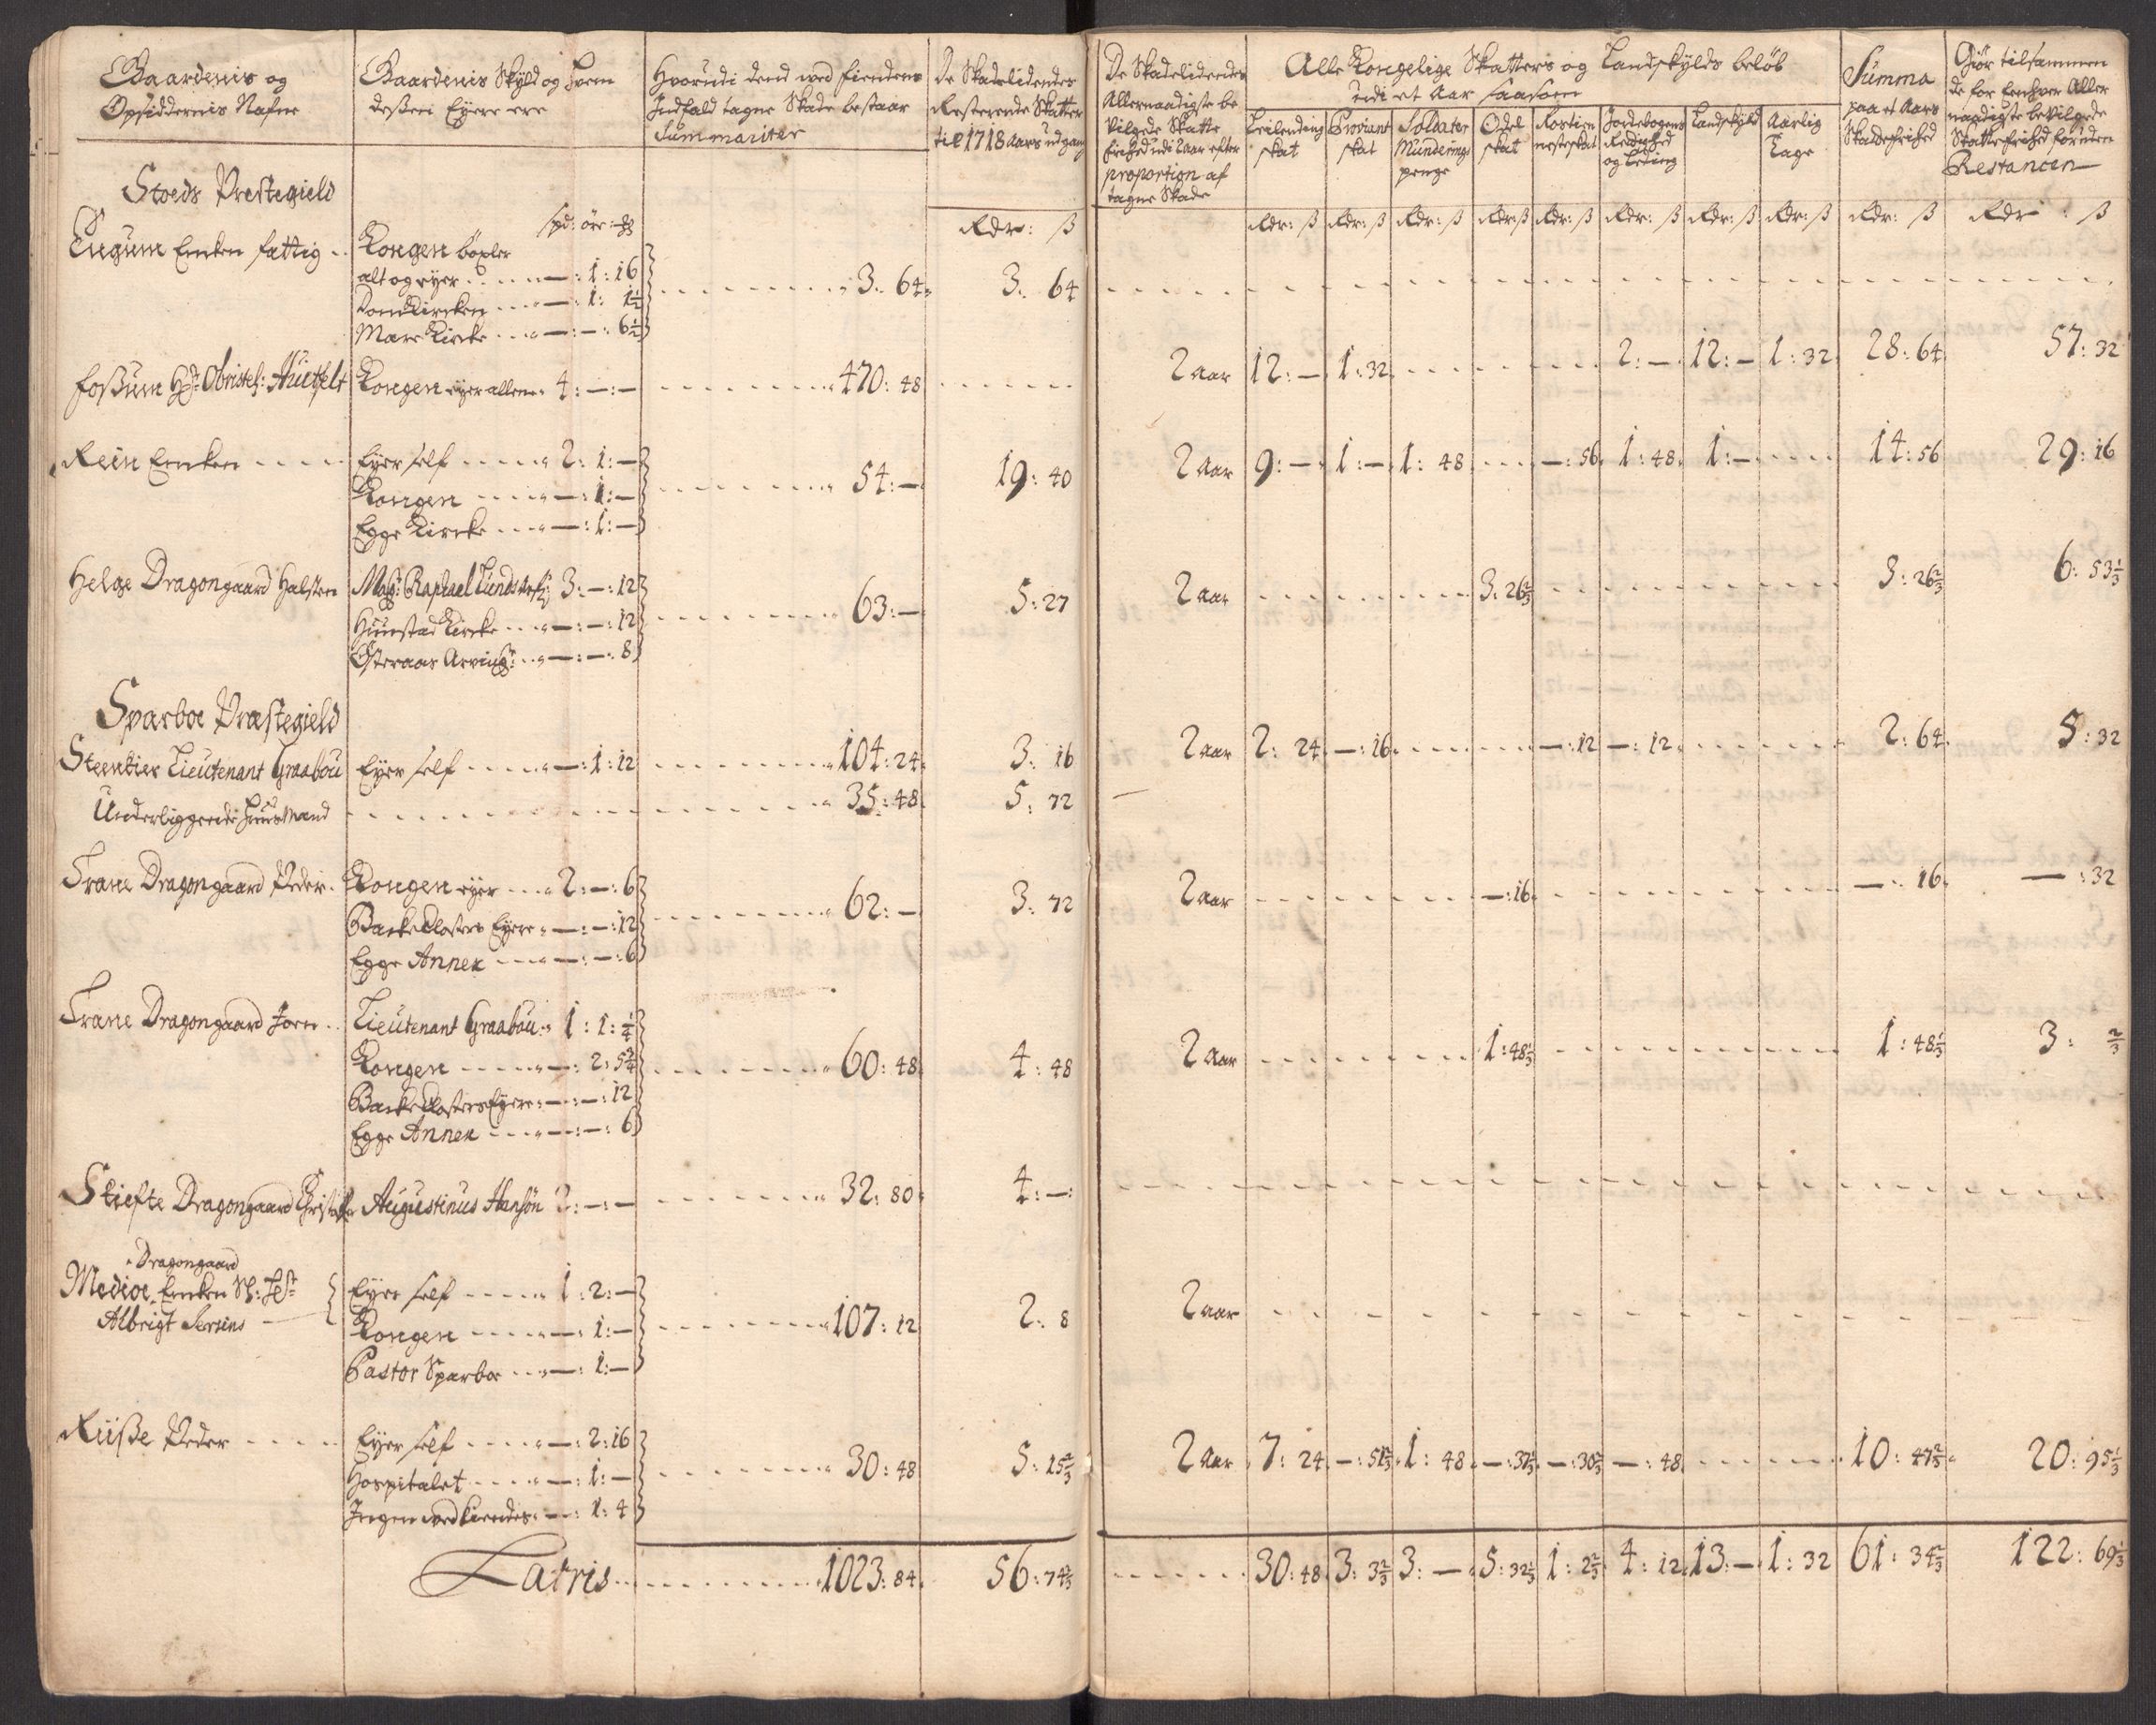 Gaardenis og
Opsiddernis Nafne
Gaardenis Skyld og hvem
deßen Eyere ere
Hvorudi dend ved fiendens
Indfald tagne Skade bestaar
Summariter
De Skadelidendes
Resterende Skatter
til 1718 Aars udgang
De Skadelidendes
Allernaadigste be
vilgede Skatte
frihed udi 2 Aar efter
proportion af
tagne Skade
Alle Kongelige Skatters og Landskylds beløb
udi et Aar saasom
Leilending
skat
Proviant
skat
Soldater
Munderings
penge
Odel
skat
Rostien
nesteskat
Jordebogens
Redighed
og Leding
Landskyld
Aarlig
Tage
Summa
paa et Aars
Skattefrihed
Giør tilsammen
de for Eenhver Aller
naadigste bevilgede
Skattefrihed foruden
Restancen
Rdr: ß
Rdr: ß Rdr: ß Rdr: ß Rdr: ß Rdr: ß Rdr: ß Rdr: ß Rdr: ß Rdr: ß Rdr: ß
Stoeds Prestegield
spd: öre:
Engum Enken fattig
Kongen böxler
alt og eyer — : 1 : 16
DomKircken — : 1 : 1½
Mære Kircke — : — : 6½
3: 64 3: 64
Foßum Obristel: Huitfelt Kongen eyer allene 4 : — : — 470: 48
2 Aar 12: — 1: 32 2: — 12: — 1: 32 28: 64 57: 32
Rein Enken Eyer self 2: 1: —
Kongen — : 1: —
Egge Kircke — : 1: —
54: — 19: 40 2 Aar 9: — 1: — 1: 48 — : 56 1: 48 1: — 14: 56 29: 16
Helge Dragongaard Halsteen Mag: Raphael Lunds 3: — : 12
Hunstad Kircke — : — : 12
Østeraas Arving — : — : 8
63: — 5: 27 2 Aar 3: 26⅔ 3: 26⅔ 6: 53⅓
Sparboe Præstegield
Steenkier Lieutenant Graabou Eyer self — : 1 : 12 104: 24 3: 16 2 Aar 2: 24 — : 16 — : 12 — : 12 2: 64 5: 32
Underliggende HuusMand 35: 48 5: 72 —
Trane Dragongaard Peder Kongen eyer 2: — : 6
Backe Closters Eyere — : — : 12
Egge Annex — : — : 6
62: — 3: 72 2 Aar — : 16 — : 16 — : 32
Trane Dragongaard Joen Lieutenant Graabou 1 : 1 : ¼
Kongen — : 2: 5¾
Backe Closters Eyere — : — : 12
Egge Annex — : — : 6
60: 48 4: 48 2 Aar 1: 48⅓ 1: 48⅓ 3: ⅔
Stiefte Dragongaard Augustinus Hansøn 2: — : — 32: 80 4: —
Dragongaard
Medioe Enken
Albrigt
Eyer self 1: 2: —
Kongen — : 1: —
Pastor Sparboe — : 1: —
107: 12 2: 8 2 Aar
Ruße Peder Eyer self — : 2: 16
Hospitalet — : 1: —
Ingen vedkiendes — : 1: 4
30: 48 5: 15⅔ 2 Aar 7: 24 — : 51⅔ 1: 48 — : 37⅓ — : 30⅔ — : 48 10: 47⅔ 20: 95⅓
Latris 1023: 84 56: 74⅔ 30: 48 3: 3⅔ 3: — 5: 32⅓ 1: 2⅔ 4: 12 13: — 1: 32 61: 34⅔ 122: 69⅓